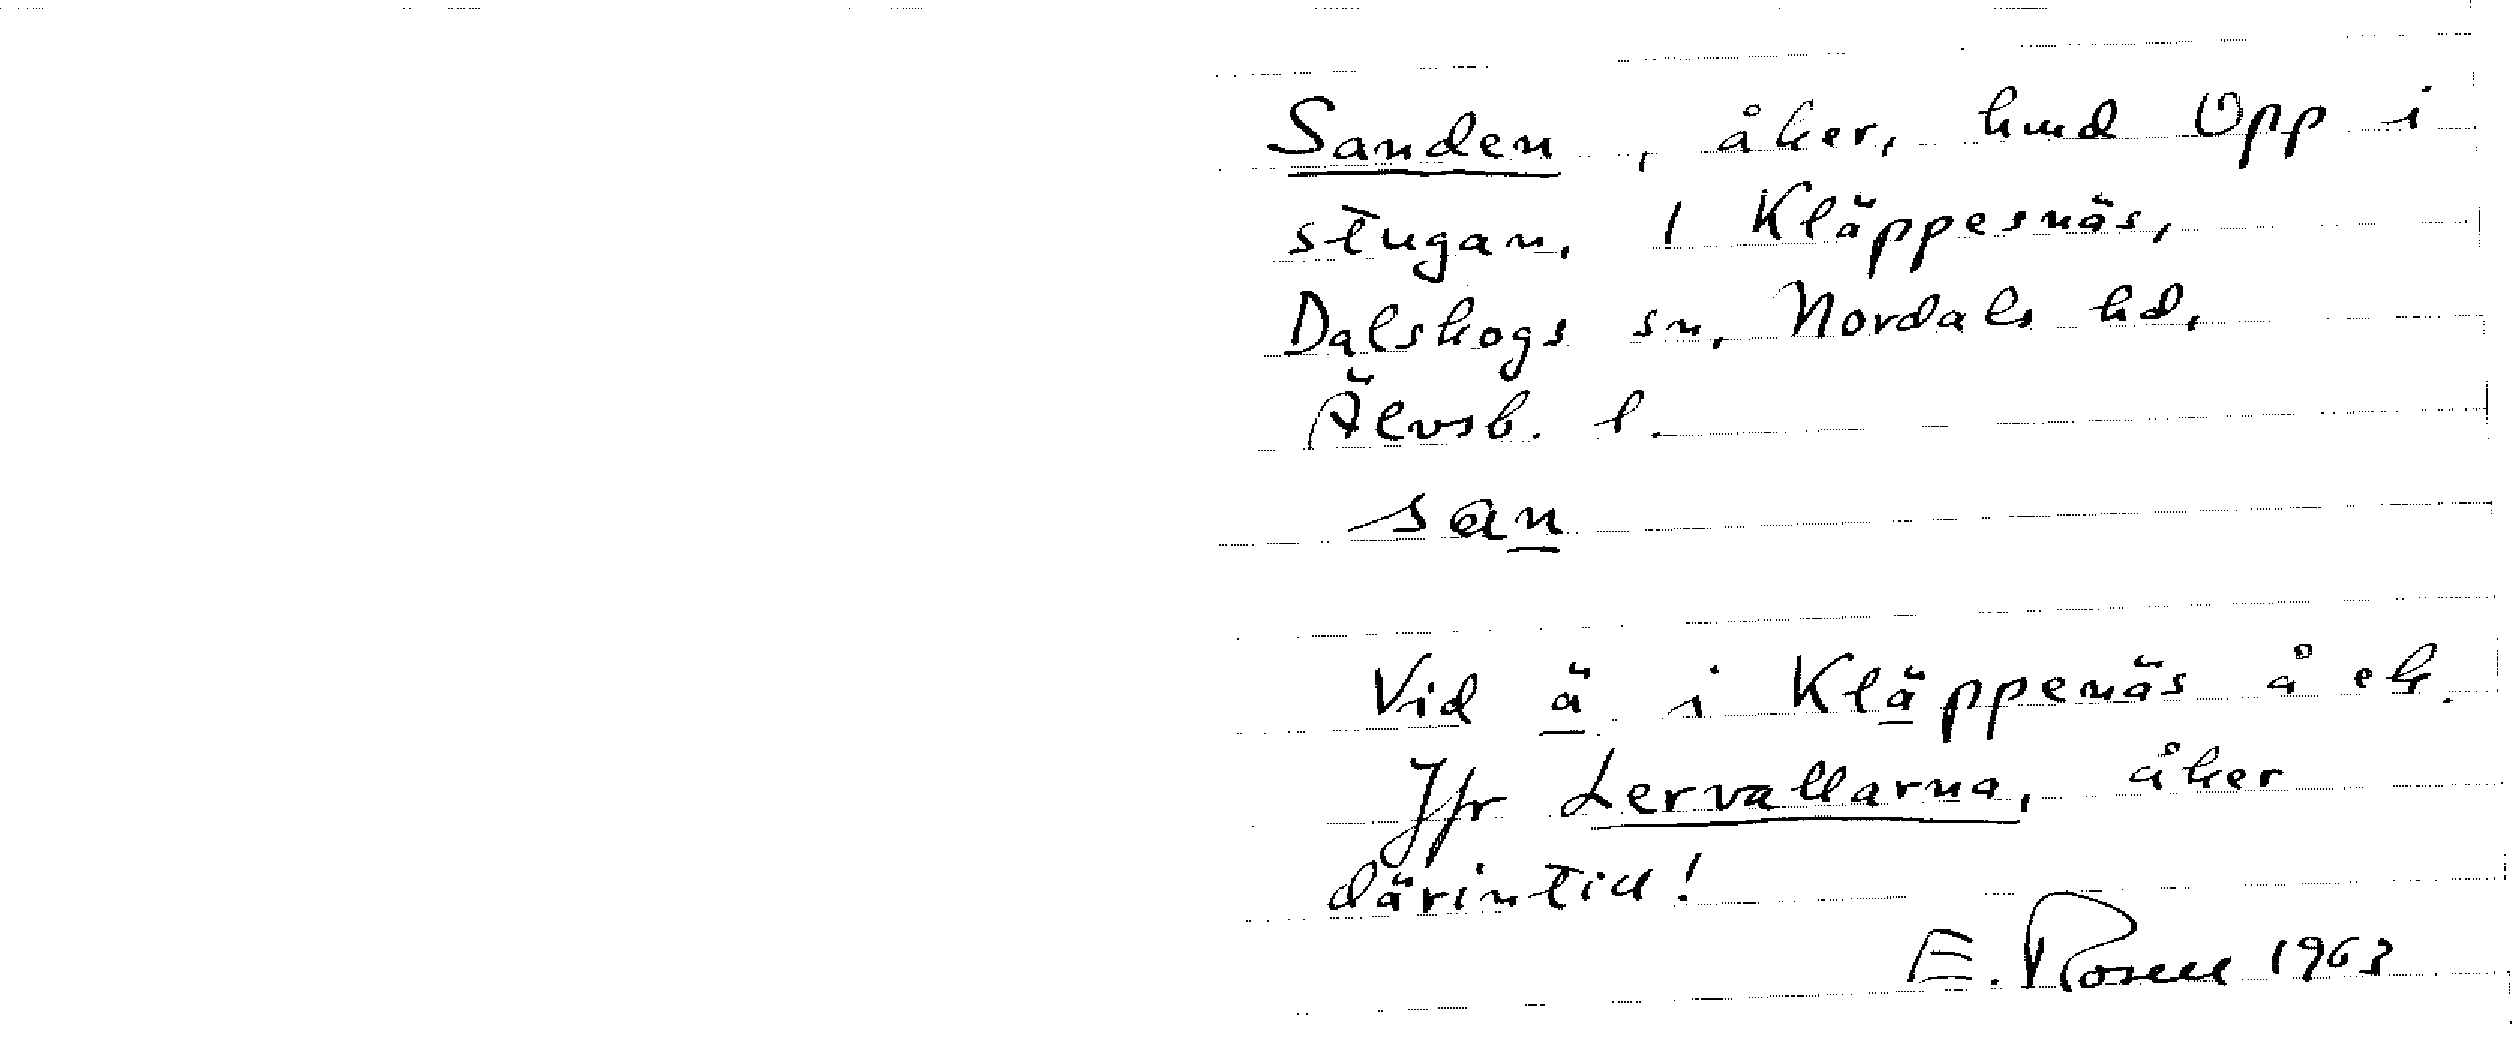 Sanden, åker, hmd Opp i
stugan, 1 Kläppesnäs,
Dalskogs sn, Nordals hd,
Älvsb. l.
san
Vid ä i Kläppenäs å ek.
Jfr Lervallarna, åker
därintill!
E. Rosell 1963